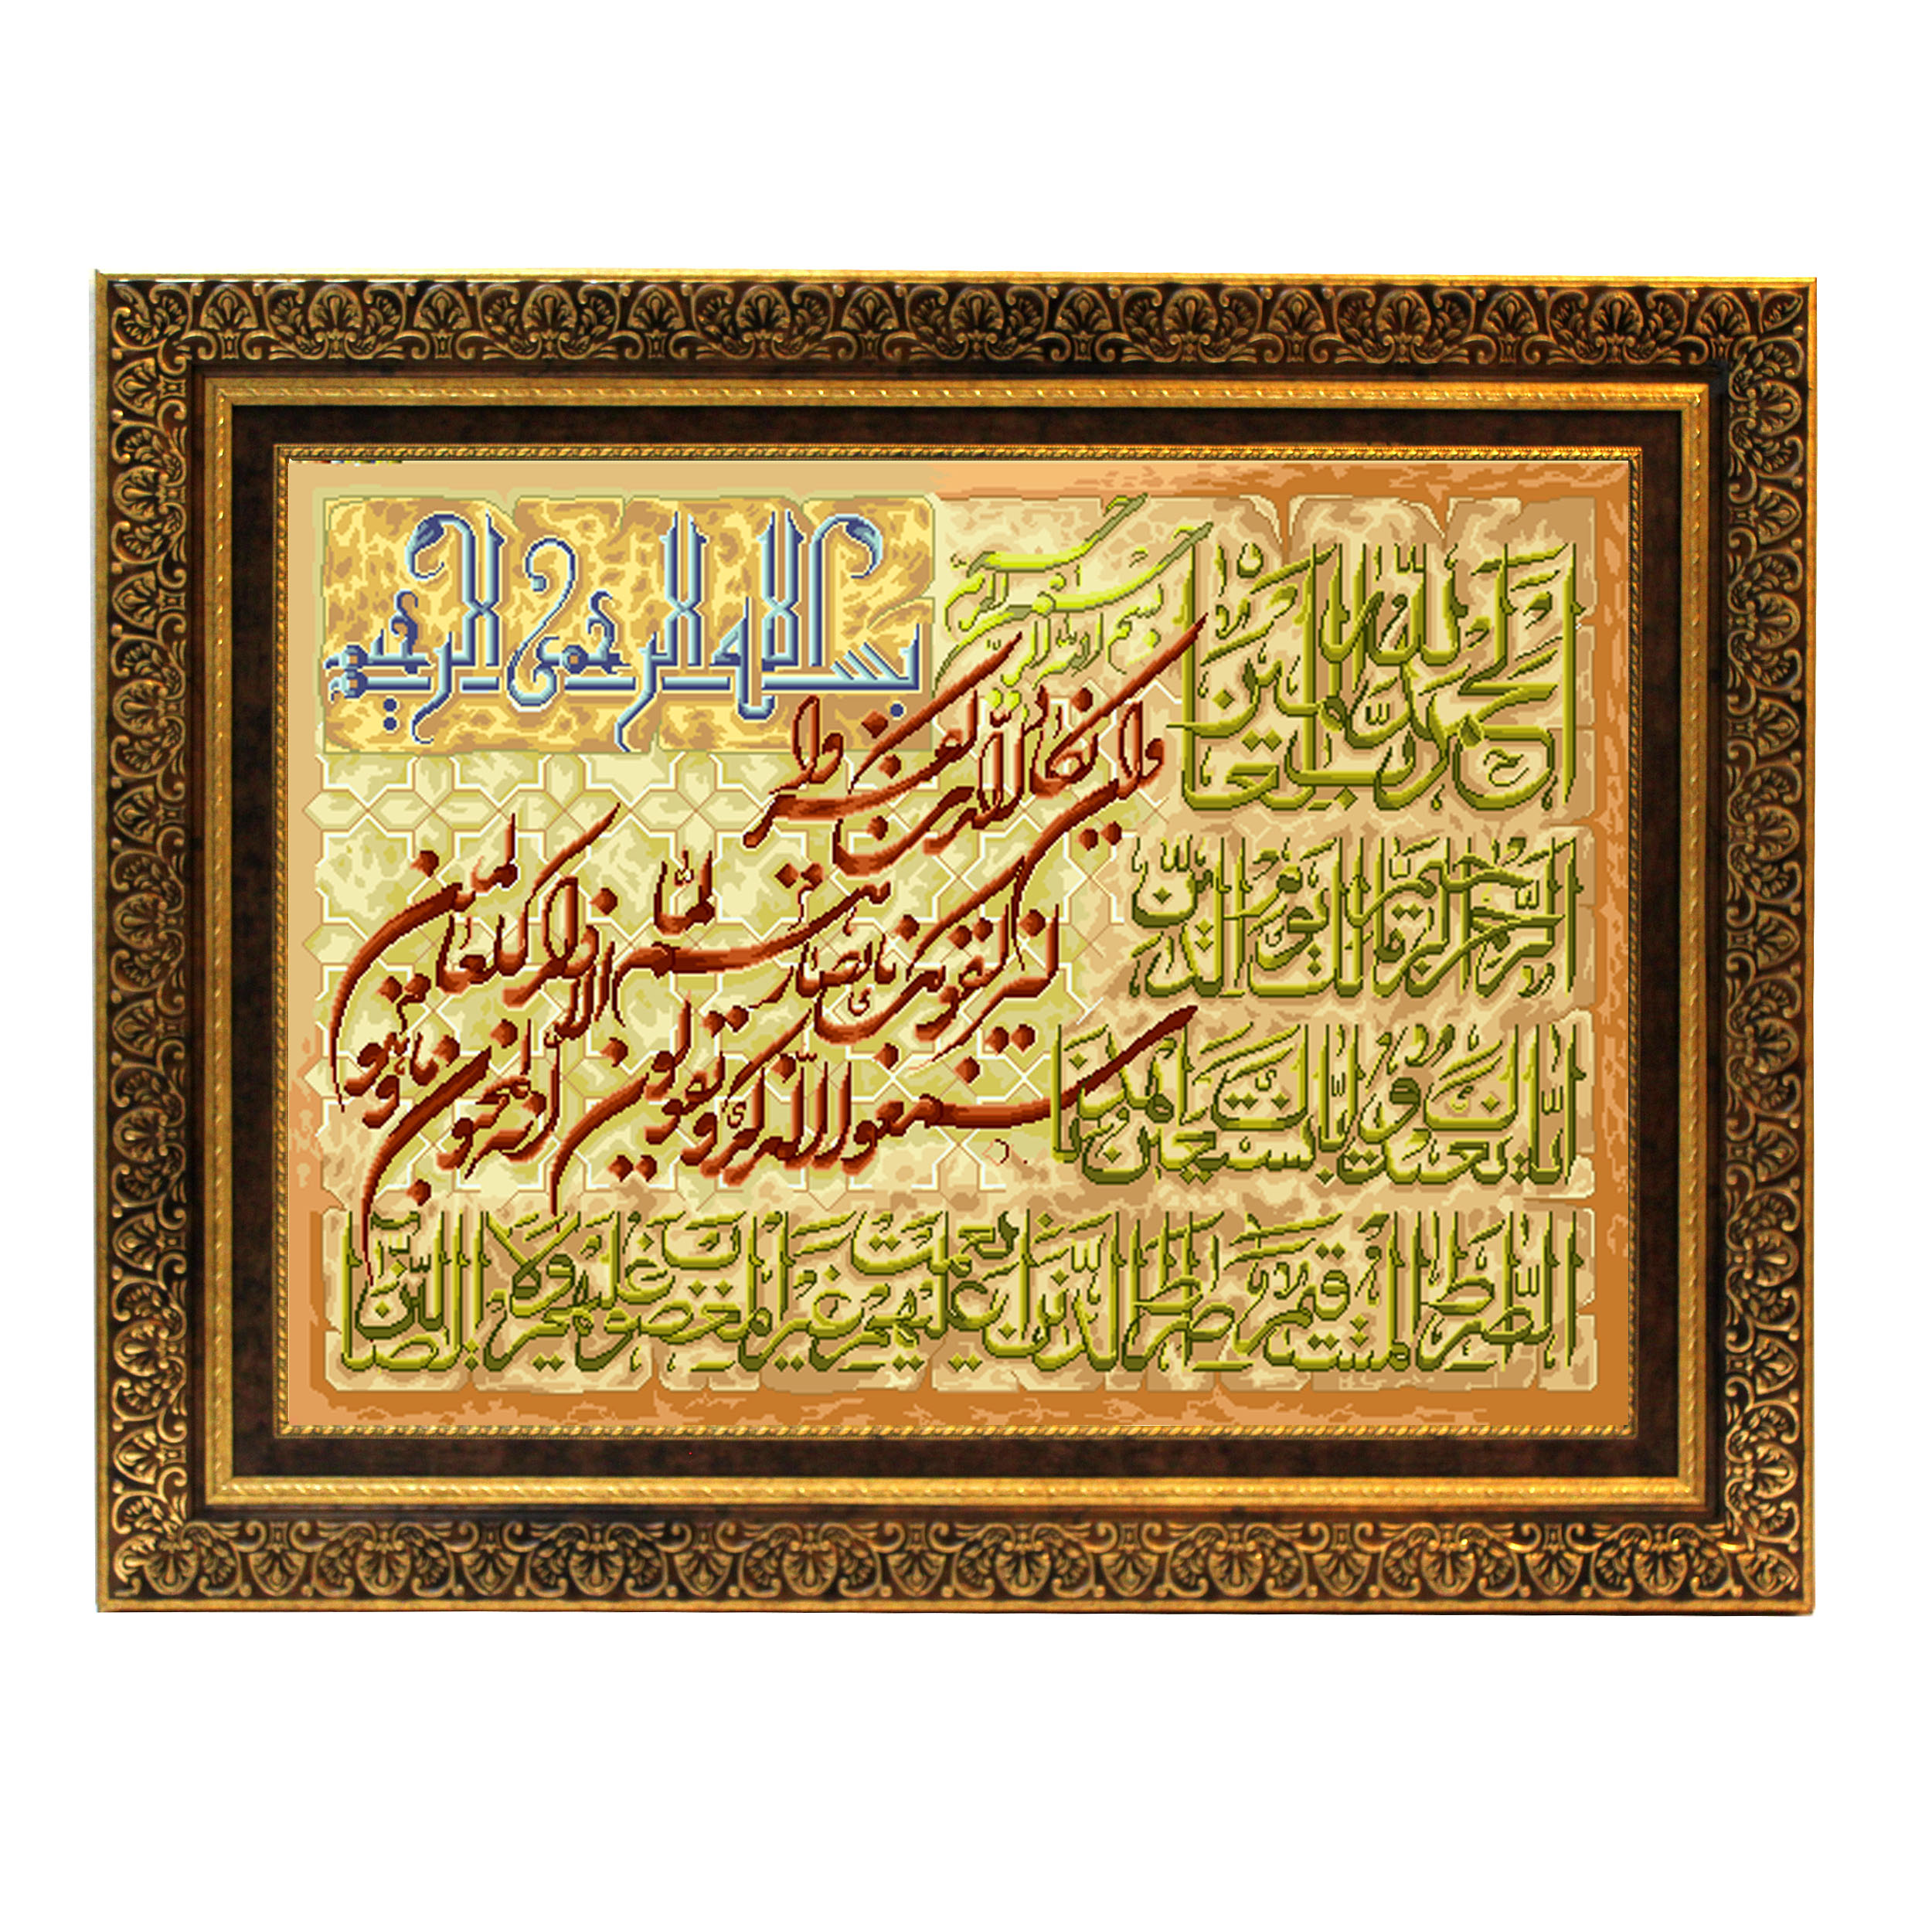 بسم الله الرحمن الرحیم
بسم الله الرحمن الرحیم
الحمد لله رب العالمین
الرحمن الرحیم مالک یوم الدین
ایاک نعبد و ایاک نستعین اهدنا
الصراط المستقیم صراط الذین انعمت علیهم غیر المغضوب علیهم ولا الضالین
وان یکاد الذین کفروا
لیزلقونک بابصارهم لما
سمعوا الذکر و یقولون انه لمجنون و ما هو الا ذکر للعالمین